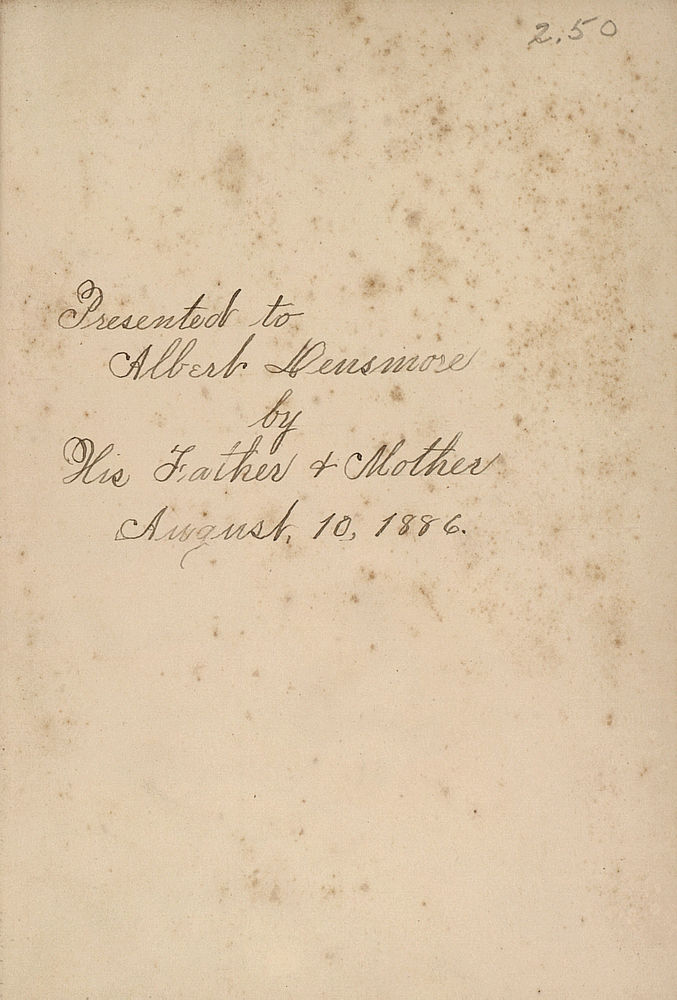 2.50
Presented to
Albert Densmore
by
His Father & Mother
August, 10, 1886.